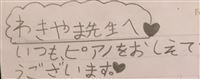 わきやま先生へ♥
いつも、ピアノをおしえて
うございます。♥